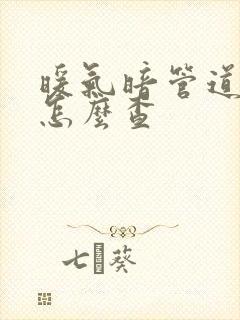 暖氣暗管道
怎麼查
七 葵